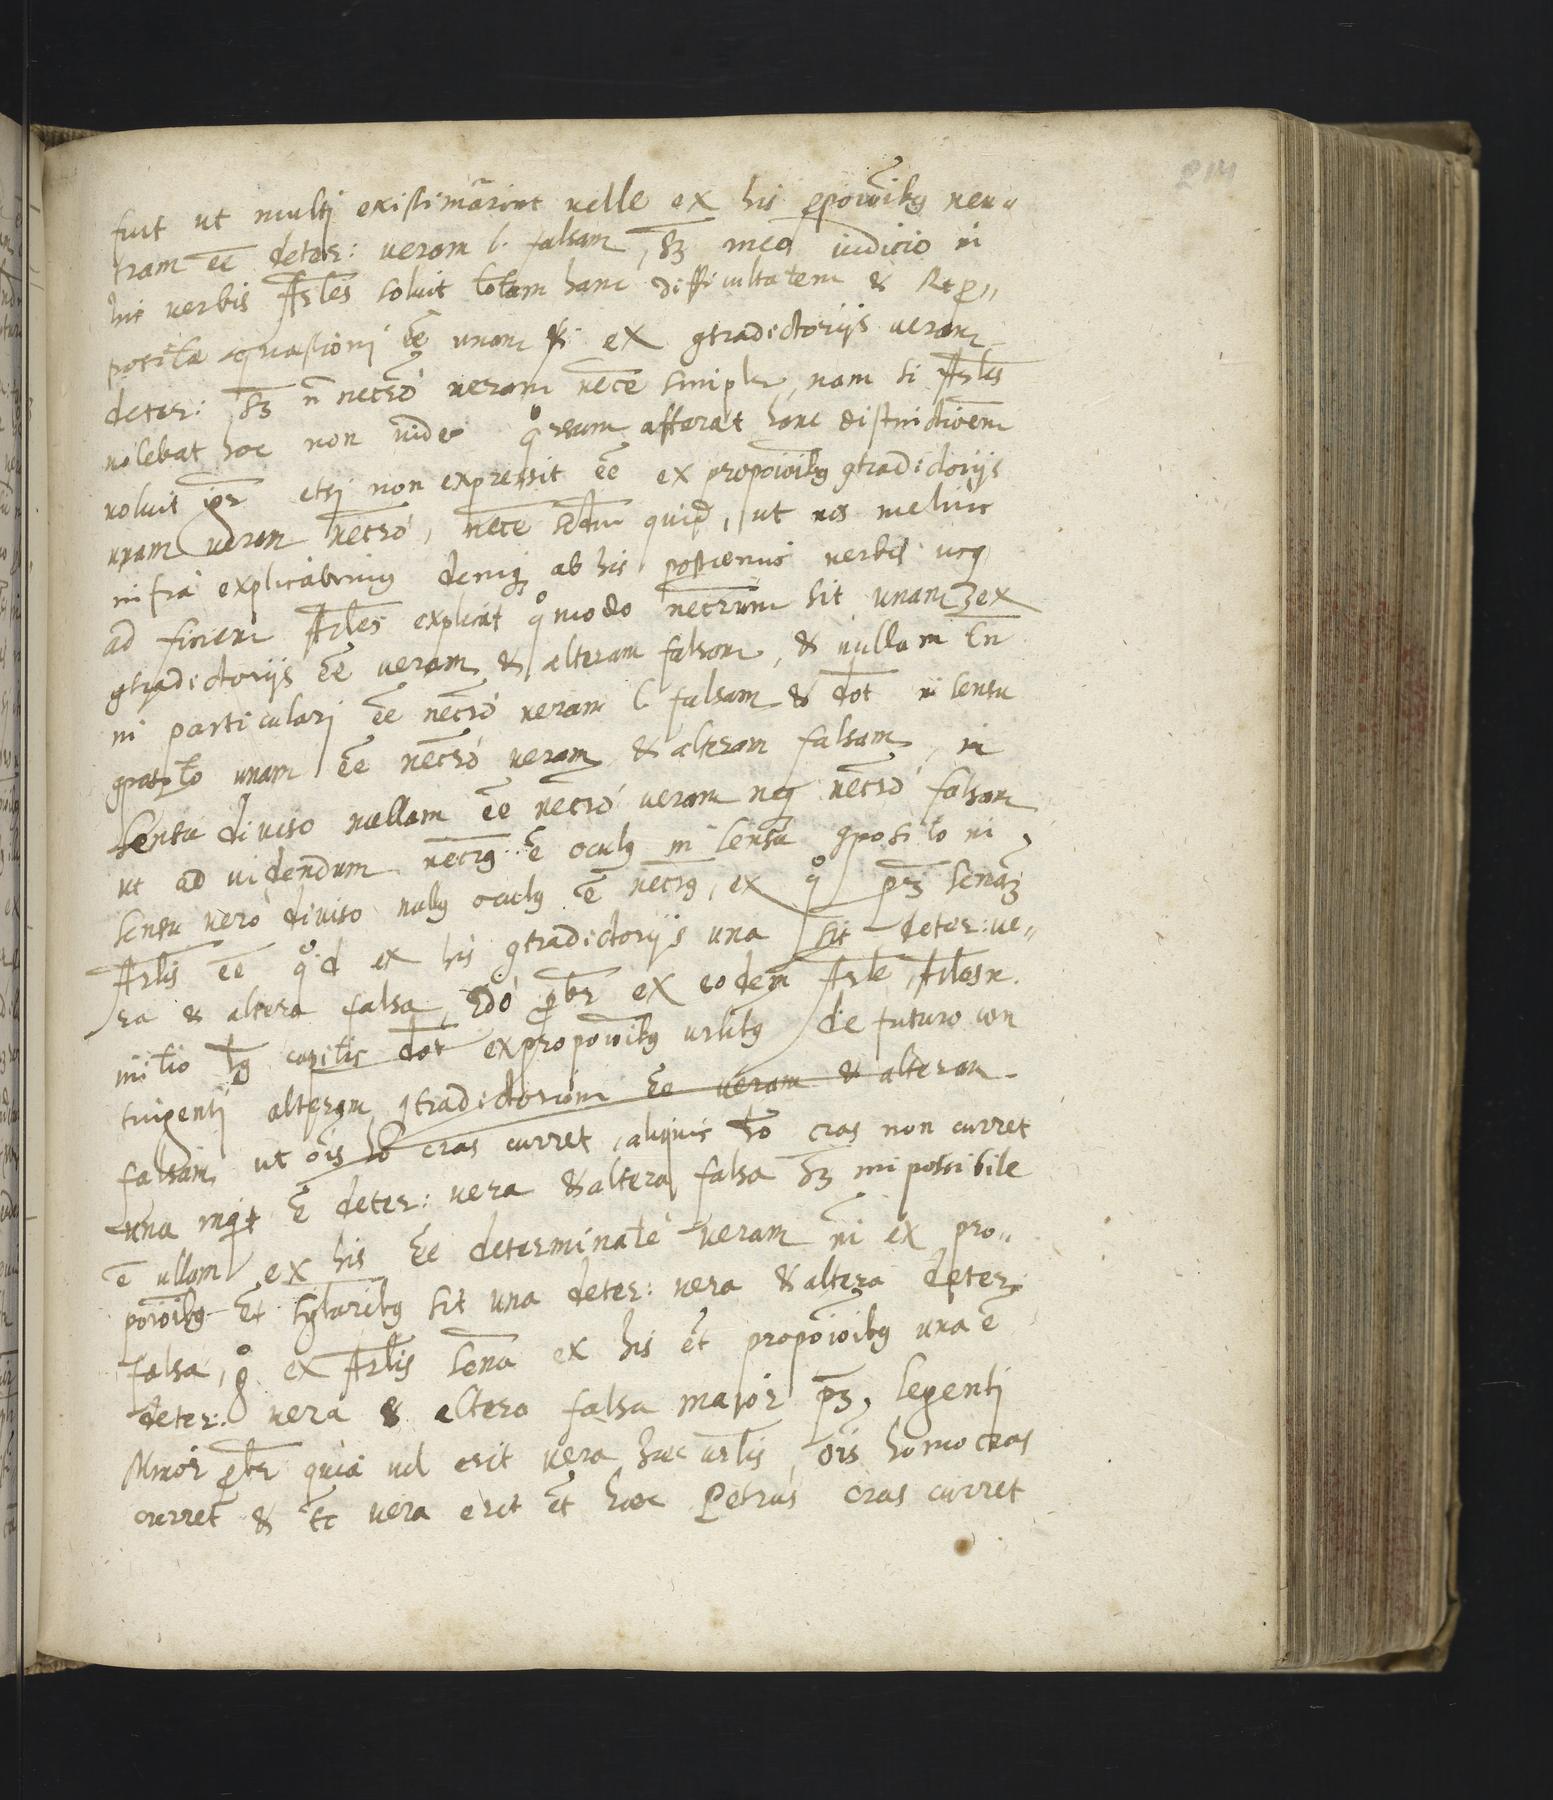 214
fuit ut multi existimarint velle ex his ppoīōibꝫ neu〃
tram ēe deter: veram l. falsam, sꝫ meo iudicio in
his verbis Arles̄ soluit totam hanc difficultatem & Resp〃
positae quaestioni ēe unam ex ↄtradictorijs veram
deter: sꝫ n̄ necrō veram nec̄e simplr, nam si Arles̄
nolebat hoc non vide qͦrsum afferat hanc distinctiōem
voluit igr̄ etsi non expressit ēe ex propōioibꝫ ↄtradictorijs
unam veram necrō, nec̄e quid, ut nos melius
infra explicabimus deniqꝫ ab his postremis verbis usqꝫ
ad finem Arles̄ explicat qͦmodo necrium sit unam ex
ↄtradictorijs ēe veram & alteram falsam, & nullam tn̄
in particulari ēe necrō veram l falsam & dōt in sensu
ↄposito unam ēe necrō veram & alteram falsam, in
sensu diviso nullam ēe necrō veram neqꝫ necrō falsam
ut ad videndum necriꝰ ē oculꝰ in sensu ↄposito in
sensu vero diviso nullꝰ oculꝰ ē necriꝰ, ex qͦ pꝫ senam
Arlis̄ ēe qͦd ex his ↄtradictorijs una sit deter: ve〃
ra & altera falsa, 2dō pr̄br ex eodem Arle, Arles n.
initio capitis dōt ex propoīōibꝫ urlibꝫ de futuro con
tingenti alteram ↄtradictoriam ēe veram & alteram
falsam, ut oīs hō cras curret, aliquis hō cras non curret
una inqt ē deter: vera & altera falsa sꝫ impossibile
ē ullam ex his ēe determinatè veram ni ex pro〃
poīōibꝫ ēt sglaribꝫ sit una deter: vera & altera deter
falsa, gͦ ex Arlis̄ senā ex his ēt propōīōibꝫ una ē
deter: vera & altera falsa maior pꝫ legenti
Minor pr̄br quia vel erit vera haec urlis, oīs homo cras
curret & tc̄ vera erit ēt haec Petrus cras curret